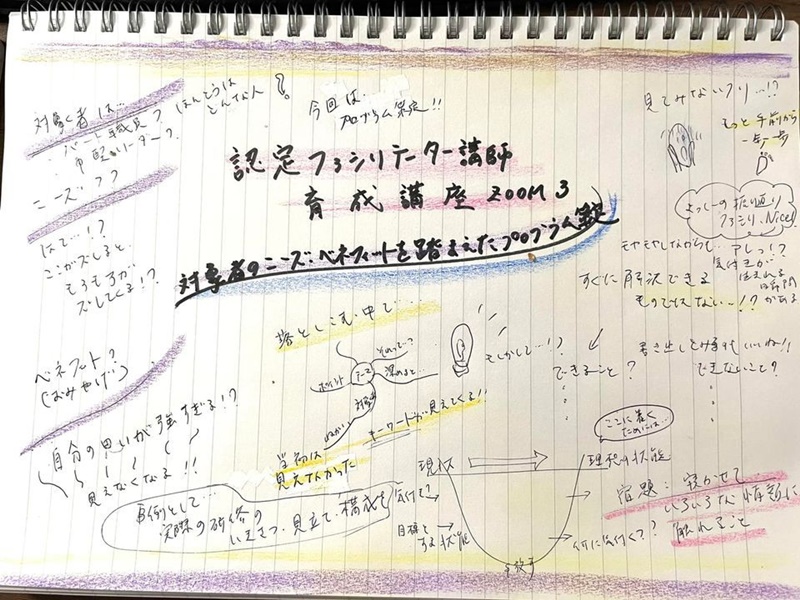 対象者は…
ほんとうは
どんな人?
パート職員?
中堅?リーダー?
ニーズ??
はて…!?
ここがズレると
もろもろが
ズレてくる!?
ベネフィット?
(おみやげ)
自分の思いが強すぎる!?
見えなくなる!!
今回は…
プログラム策定!!
認定ファシリテーター講師
育成講座 ZOOM 3
対象者のニーズ・ベネフィットを踏まえたプログラム策定
落とし込む中で…
テーマ
それって?
深めると…
ポイント
対象者
ねらい
キーワードが見えてくる!!
当初は
見えなかった
事例として…
実際の研修の
いきさつ・見立て・構成を
見てみないフリ…!?
もっと手前から
一歩一歩
さっしーの振り返り
ファシリ、Nice!
もやもやしながらも…
アレっ!?
気付きが
生まれる
瞬間
がある
すぐに解決できる
ものではない~!?
もしかして…!?
できること?
書き出してみるといいね!!
できないこと?
ここに着く
ためには…
現状
理想の状態
気付く?
目標と
する状態
何に気付く?
宿題:寝かせて
いろいろな情報に
触れること